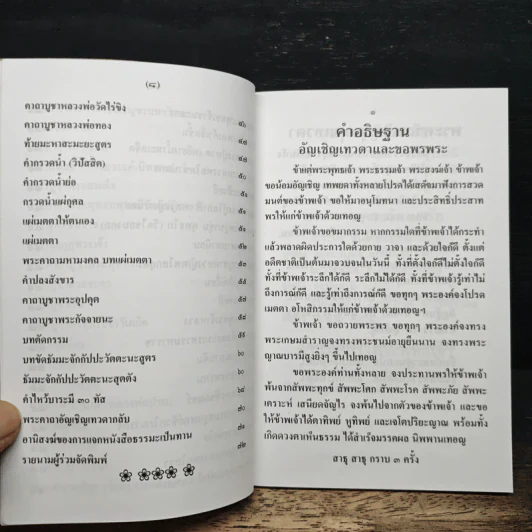 (๘)
คาถาบูชาหลวงพ่อวัดไร่ขิง ๔๖
คาถาบูชาหลวงพ่อทอง ๔๗
ท้ายมะหาสะมะยะสูตร ๔๘
คำกรวดน้ำ (วิปัสสิต)
คำกรวดน้ำย่อ ๕๑
กรวดน้ำแผ่กุศล ๕๑
แผ่เมตตาให้ตนเอง ๕๒
แผ่เมตตา ๕๒
พระคาถามหามงคล บทแผ่เมตตา ๕๓
คำปลงสังขาร
คาถาบูชาพระอุปคุต
คาถาบูชาพระกัจจายนะ
บทตัดกรรม
บทขัดธัมมะจักกัปปะวัตตะนะสูตร ๖๐
ธัมมะจักกัปปะวัตตะนะสุตตัง ๖๐
คำไหว้บารมี ๓๐ ทัส
พระคาถาอัญเชิญเทวดากลับ
อานิสงฆ์ของการแจกหนังสือธรรมะเป็นทาน
รายนามผู้ร่วมจัดพิมพ์
๑
คำอธิษฐาน
อัญเชิญเทวดาและขอพรพระ
ข้าแต่พระพุทธเจ้า พระธรรมเจ้า พระสงฆ์เจ้า ข้าพเจ้า
ขอน้อมอัญเชิญ เทพยดาทั้งหลายโปรดได้เสด็จมาฟังการสวด
มนต์ของข้าพเจ้า ขอให้มาอนุโมทนา และประสิทธิ์ประสาท
พรให้แก่ข้าพเจ้าด้วยเทอญ
ข้าพเจ้าขอขมากรรม หากกรรมใดที่ข้าพเจ้าได้กระทำ
แล้วพลาดผิดประการใดด้วยกาย วาจา และด้วยใจก็ดี ตั้งแต่
อดีตชาติเป็นต้นมาจวบจนในวันนี้ ทั้งที่ตั้งใจก็ดีไม่ตั้งใจก็ดี
ทั้งที่ข้าพเจ้าระลึกได้ก็ดี ระลึกไม่ได้ก็ดี ทั้งที่ข้าพเจ้ารู้เท่าไม่
ถึงการณ์ก็ดี และรู้เท่าถึงการณ์ก็ดี ขอทุกๆ พระองค์จงโปรด
เมตตา อโหสิกรรมให้แก่ข้าพเจ้าด้วยเทอญฯ
ข้าพเจ้า ขอถวายพระพร ขอทุกๆ พระองค์จงทรง
พระเกษมสำราญจงทรงพระชนม์อายุยืนนาน จงทรงพระ
ญาณบารมีสูงยิ่งๆ ขึ้นไปเทอญ
ขอพระองค์ท่านทั้งหลาย จงประทานพรให้ข้าพเจ้า
พ้นจากสัพพะทุกข์ สัพพะโศก สัพพะโรค สัพพะภัย สัพพะ
เคราะห์ เสนียดจัญไร จงพ้นไปจากตัวของข้าพเจ้า และขอ
ให้ข้าพเจ้าได้ตาทิพย์ หูทิพย์ และเจโตปริยะญาณ พร้อมทั้ง
เกิดดวงตาเห็นธรรม ได้สำเร็จมรรคผล นิพพานเทอญ
สาธุ สาธุ กราบ ๓ ครั้ง